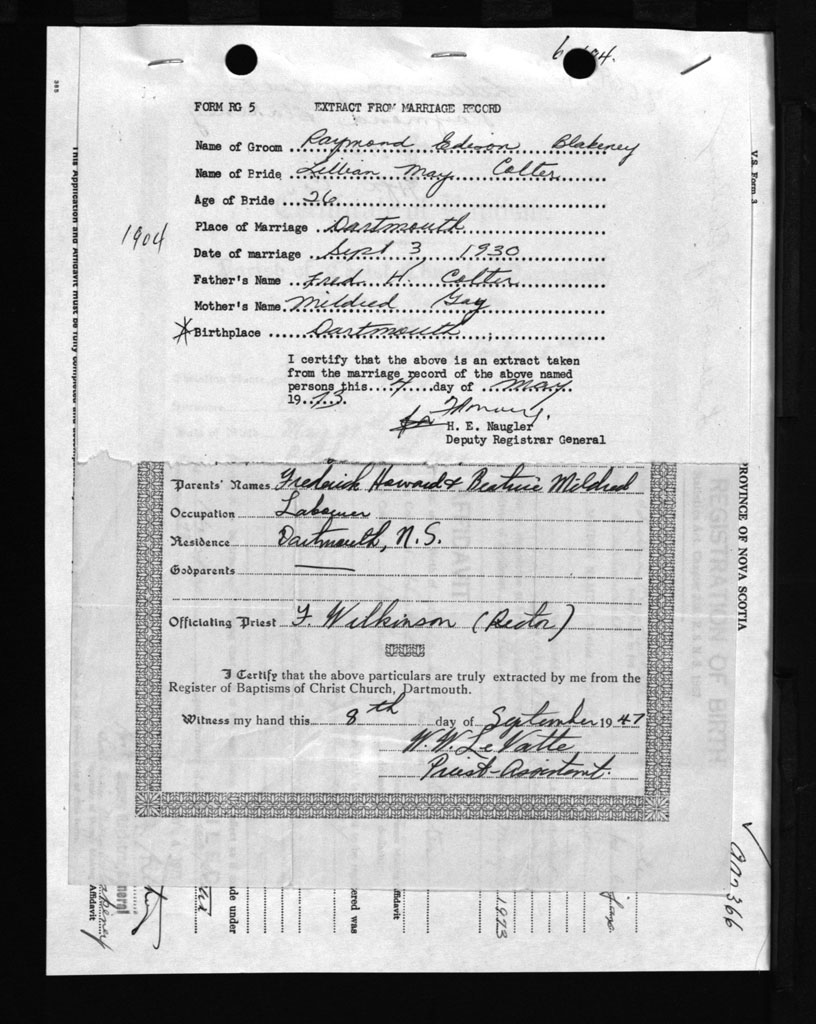 FORM RG 5 EXTRACT FROM MARRIAGE RECORD
Name of Groom Raymond Edison Blakeney
Name of Bride Lillian May Colter
Age of Bride 26
1904
Place of Marriage Dartmouth
Date of marriage Sept 3 1930
Father's Name Fred H. Colter
Mother's Name Mildred Gay
Birthplace Dartmouth
I certify that the above is an extract taken
from the marriage record of the above named
persons this 4 day of May
1973.
for H. E. Naugler
Deputy Registrar General
Parents' Names Frederick Howard & Beatrice Mildred
Occupation Labourer
Residence Dartmouth, N.S.
Godparents
Officiating Priest F. Wilkinson (Rector)
I Certify that the above particulars are truly extracted by me from the
Register of Baptisms of Christ Church, Dartmouth.
Witness my hand this 8th day of September 1947
W. W. Le Vatte
Priest-Assistant.
V.S. Form 3
PROVINCE OF NOVA SCOTIA
REGISTRATION OF BIRTH
This Application and Affidavit must be fully completed and
Affidavit
de under
ered was
ffidavit
1973
366